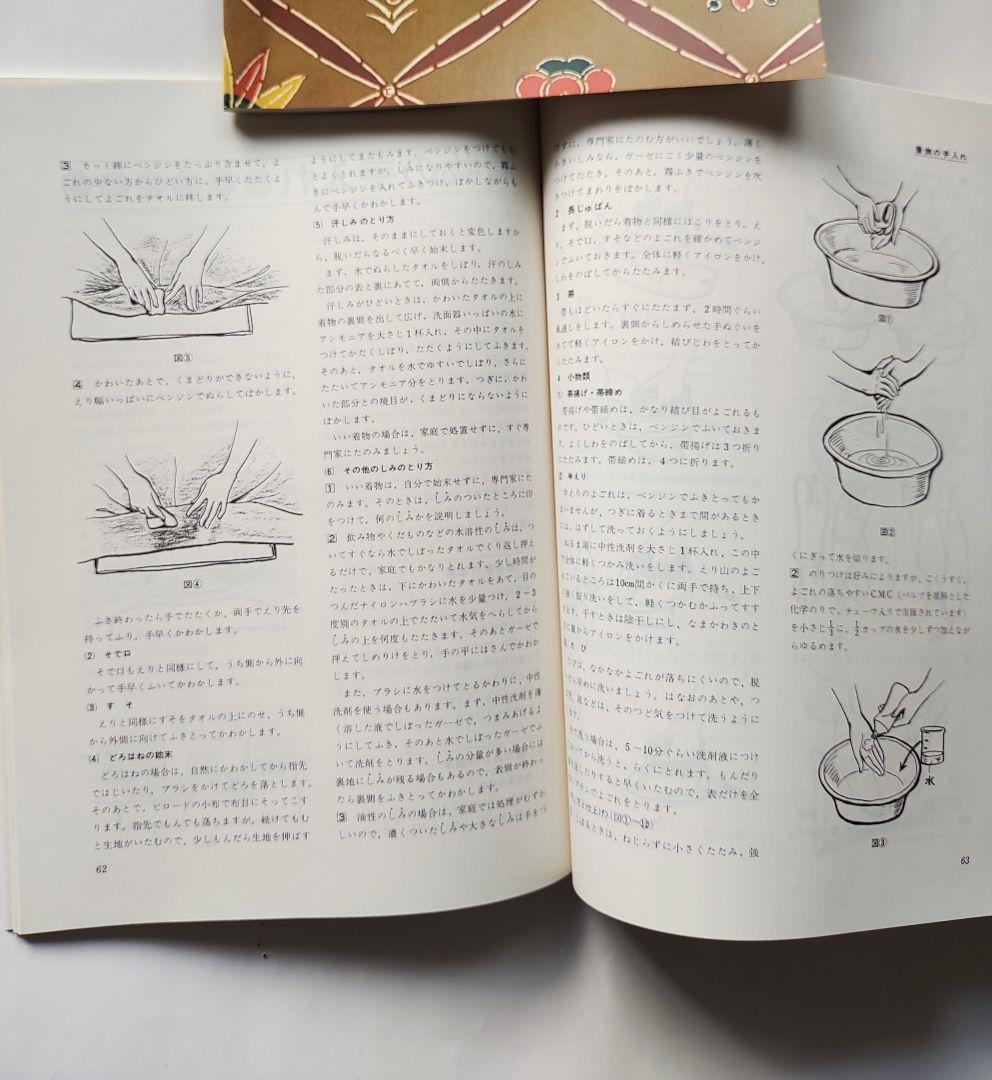 3 カット綿にベンジンをたっぷり含ませて、よ
ごれの少ない方からひどい方に、手早くたたくよ
うにしてよごれをタオルに移します。
図③
4 かわいたあとで、くまどりができないように、
えり幅いっぱいにベンジンでぬらしてぼかします。
図④
ふき終わったら手でたたくか、両手でえり先を
持ってふり、手早くかわかします。
(2) そで口
そで口もえりと同様にして、うち側から外に向
かって手早くふいてかわかします。
(3) すそ
えりと同様にすそをタオルの上にのせ、うち側
から外側に向けてふきとってかわかします。
(4) どろはねの始末
どろはねの場合は、自然にかわかしてから指先
ではじいたり、ブラシをかけてどろを落とします。
そのあとで、ビロードの小布で布目にそってこす
ります。指先でもんでも落ちますが、続けてもむ
と生地がいたむので、少しもんだら生地を伸ばす
62
ようにしてまたもみます。ベンジンをつけてもむ
とよくとれますが、しみになりやすいので、霧ふ
きにベンジンを入れてふきつけ、ぼかしながらも
んで手早くかわかします。
(5) 汗しみのとり方
汗しみは、そのままにしておくと変色しますか
ら、脱いだらなるべく早く始末します。
まず、水でぬらしたタオルをしぼり、汗のしみ
た部分の表と裏にあてて、両側からたたきます。
汗しみがひどいときは、かわいたタオルの上に
着物の裏側を出して広げ、洗面器いっぱいの水に
アンモニアを大さじ1杯入れ、その中にタオルを
つけてかたくしぼり、たたくようにしてふきます。
そのあと、タオルを水でゆすいでしぼり、さらに
たたいてアンモニア分をとります。つぎに、かわ
いた部分との境目が、くまどりにならないように
ぼかします。
いい着物の場合は、家庭で処置せずに、すぐ専
門家にたのみましょう。
(6) その他のしみのとり方
1 いい着物は、自分で始末せずに、専門家にた
のみます。そのときは、しみのついたところに印
をつけて、何のしみかを説明しましょう。
2 飲み物やくだものなどの水溶性のしみは、つ
いてすぐなら水でしぼったタオルでくり返し押え
るだけで、家庭でもかなりとれます。少し時間が
たったときは、下にかわいたタオルをあて、目の
つんだナイロンハブラシに水を少量つけ、2－3
度別のタオルの上でたたいて水気をへらしてから
しみの上を何度もたたきます。そのあとガーゼで
押えてしめりけをとり、手の平にはさんでかわか
します。
また、ブラシに水をつけてとるかわりに、中性
洗剤を使う場合もあります。まず、中性洗剤を薄
く溶した液でしぼったガーゼで、つまみあげるよ
うにしてふき、そのあと水でしぼったガーゼでふ
いて洗剤をとります。しみの分量が多い場合には
裏地にしみが残る場合もあるので、表側が終わっ
たら裏側をふきとってかわかします。
3 油性のしみの場合は、家庭では処理がむずか
しいので、濃くついたしみや大きなしみは手をつ
ずに、専門家にたのむ方がいいでしょう。薄く
小さいしみなら、ガーゼにごく少量のベンジンを
つけてたたき、そのあと、霧ふきでベンジンを吹
きつけてまわりをぼかします。
2 長じゅばん
まず、脱いだら着物と同様にほこりをとり、え
り、そで口、すそなどのよごれを確かめてベンジ
ンでふいておきます。全体に軽くアイロンをかけ、
しわをのばしてからたたみます。
3 帯
帯もほどいたらすぐにたたまず、2時間ぐらい
風通しをします。裏側からしめらせた手ぬぐいを
あてて軽くアイロンをかけ、結びじわをとってか
らたたみます。
4 小物類
① 帯揚げ・帯締め
帯揚げや帯締めは、かなり結び目がよごれるも
のです。ひどいときは、ベンジンでふいておきま
す。よくしわをのばしてから、帯揚げは3つ折り
にたたみます。帯締めは、4つに折ります。
② 半えり
半えりのよごれは、ベンジンでふきとってもか
まいませんが、つぎに着るときまで間があるとき
には、はずして洗っておくようにしましょう。
ぬるま湯に中性洗剤を大さじ1杯入れ、この中
で全体に軽くつかみ洗いをします。えり山のよご
れているところは10cm間かくに両手で持ち、上下
に振り洗いをして、軽くつかむかふってすす
ます。干すときは陰干しにし、なまかわきのと
に裏からアイロンをかけます。
たび
たびは、なかなかよごれが落ちにくいので、脱
いだら早めに洗いましょう。はなおのあとや、つ
先、甲などは、そのつど気をつけて洗うように
ます。
で洗う場合は、5－10分ぐらい洗剤液につけ
おいてから洗うと、らくにとれます。もんだり
裏返したりすると早くいたむので、表だけを全
ブラシでよごれをとります。
(図①－⑫)
しぼるときは、ねじらずに小さくたたみ、強
着物の手入れ
図①
図②
くにぎって水を切ります。
2 のりつけは好みによりますが、ごくうすく、
よごれの落ちやすいCMC(パルプを原料とした
化学のりで、チューブ入りで市販されています)
を小さじ1/3に、1/2カップの水を少しずつ加えなが
らゆるめます。
水
図③
63